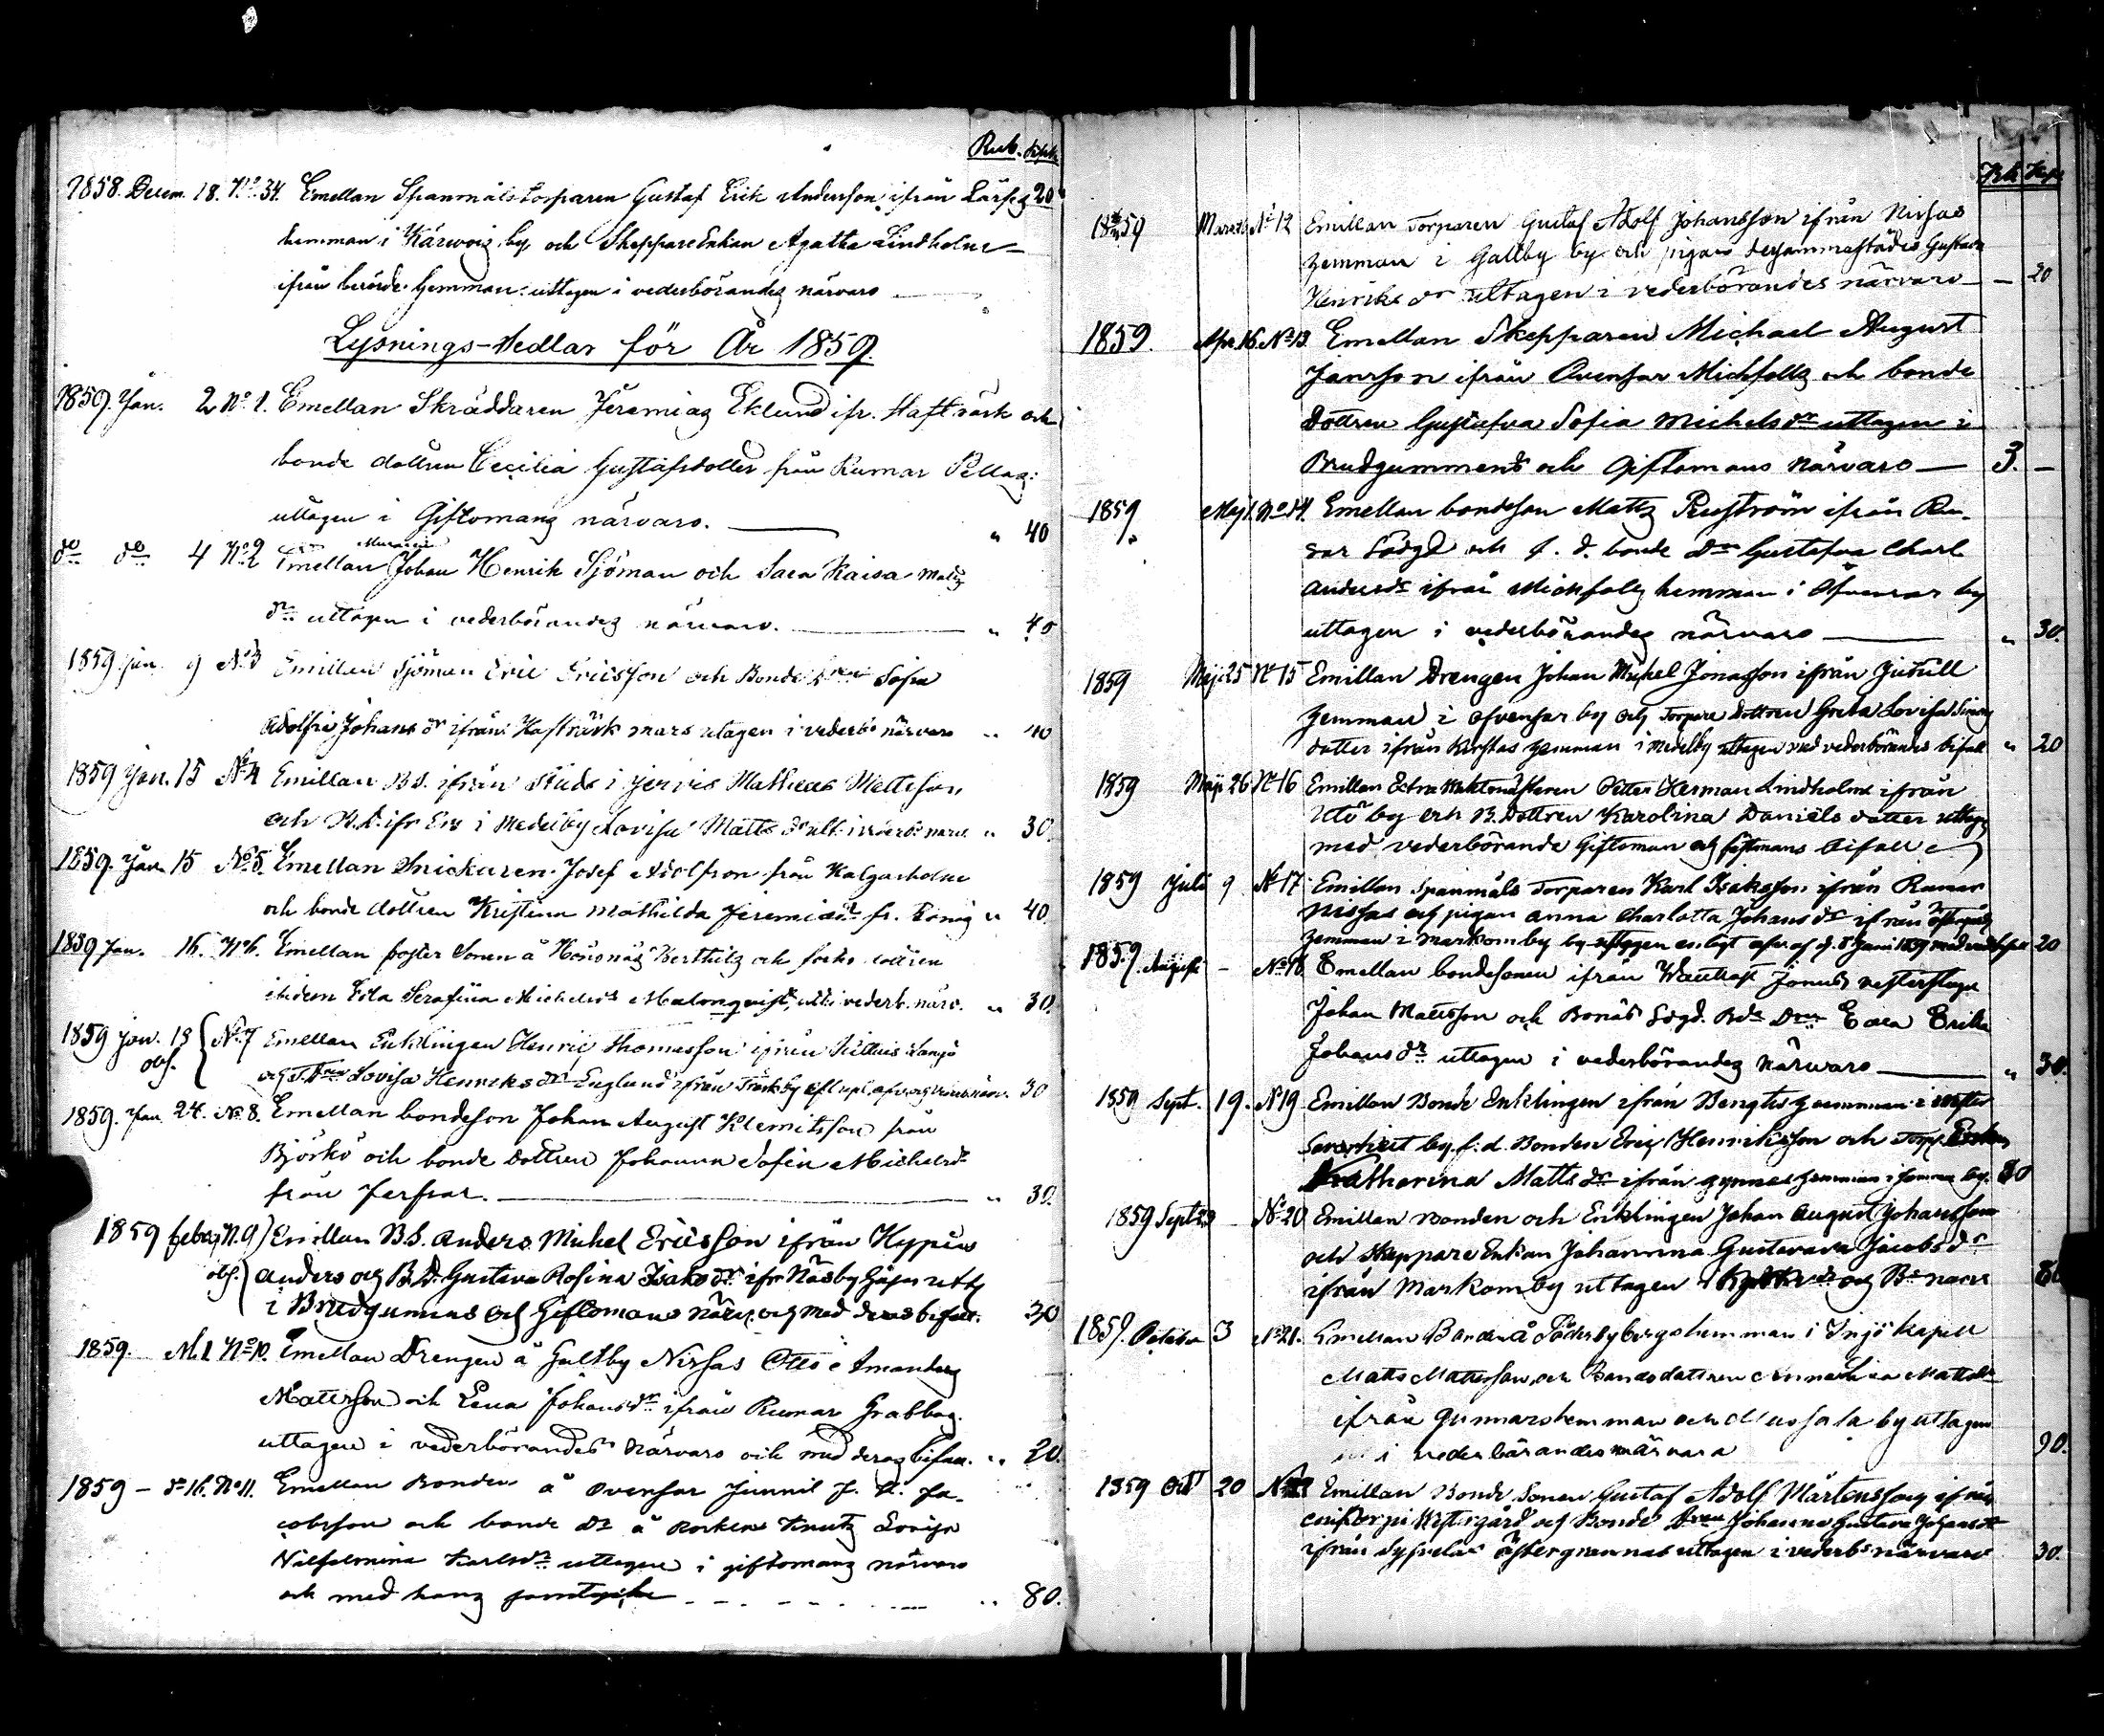 Rub. Kopk
1858. Decem. 18. No. 34. Emellan Spanmålstorparen Gustaf Erik Andersson ifrån Lars 20
hemman i Kärwois by och Skeppare Enkan Agatha Lindholm
ifrån berörde hemman uttagen i vederbörandes närvaro
Lysnings-Sedlar för År 1859.
1859. Jan. 2 No. 1. Emellan Skräddaren Jeremias Eklund ifr. Haftträsk och
bonde dottren Cecilia Gustafsdotter från Rumar Pellas:
uttagen i Giftomans närvaro. „ 40
do do 4 No. 2 Emellan Johan Henrik Sjöman och Sara Kaisa Matts
dr uttagen i vederbörandes närvaro. „ 40
1859 jan. 9 No. 3 Emillan Sjöman Eric Ericsson och Bonde Dren Sofia
Adolfia Johans dr ifrån Haftträsk mars utagen i vederbs närvaro „ 40
1859 Jan. 15 No. 4 Emillan B.S. ifrån Studs i Jervis Mathias Mattsson
och ifr Ers i Medelby Lovisa Matts dr utt. i vederbs narv. „ 30.
1859. Jan 15 No. 5. Emellan Snickaren Josef Adolfson från Kalgarholm
och bonde dottren Kristina Mathilda Jeremiædr fr. „ 40.
1859 Jan. 16. No. 6. Emellan foster Sonen å Hösonäs Berthils och foster dottren
ibidem Eda Serafiia Michelsdr Malmqvist, utt. i vederb. närv. „ 30.
1859 Jan. 13 No. 7 Emellan Enklingen Henric Thomasson ifrån Killuis Langö
obs. och T. Dren Lovisa Henriks dr Englund ifrån Träskby 30
1859. Jan 24. No. 8. Emellan bondeson Johan August Klemitsson från
Björkö och bonde dottren Johanna Sofia Michelsdr
från Jerfsar. „ 30.
1859 febr. N. 9) Emillan B.S. Anders Mickel Ericsson ifrån Kypis
obs. Anders och B.D. Gustava Rosina Isaks dr ifr Näsby utt
i Brudgumens och Giftomans närv. och med deras bifall. 30
1859. M. 1 No. 10. Emellan Drengen å Galtby Nissas Otto Amandus
Mattsson och Lena Johansdr ifrån Rumar Grabbas
uttagen i vederbörandes närvaro och med deras bifall. „ 20.
1859 – do 16. No. 11. Emellan Bonden å Ovensar Junnil J. A. Ja-
cobsson och bonde dr å Korkis Knuts Lovisa
Vilhelmina Karlsdr uttagen i giftomans närvaro
och med hans samtycke „ 80.
Rb. Kop
1859 Marts No. 12 Emillan Torparen Gustaf Adolf Johansson ifrån Nissas
hemman i Galtby by och pigan desammastädes Gustava
Henriks dr uttagen i vederbörandes närvaro — 20
1859. Apr. 16. No. 13. Emellan Skepparen Michael August
Jansson ifrån Ovensar Mickfolls och bonde
Dottren Gustafva Sofia Michelsdr uttagen i
Brudgummens och Giftomans närvaro — 3. —
1859 Maj 1. No. 14. Emellan bondeson Matts Ruström ifrån Ru-
mar Södgd och f. d. bonde Dren Gustafva Charl.
Andersdr ifrån Mickfolls hemman i Ofvensar by
uttagen i vederbörandes närvaro „ 30.
1859 Maji 25 No. 15 Emillan Drengen Johan Mickel Jonasson ifrån Judull
hemman i Ofvensar by och Torpare dottren Greta Lovisa Simons
dotter ifrån Kirstas hemman i Medelby uttagen med vederbörandes bifall „ 20
1859 Maji 26 No. 16 Emillan Extra Waktmästaren Petter Herman Lindholm ifrån
Utö by och B. Dottren Karolina Daniels dotter uttagen
med vederbörande Giftoman och fästmans bifall
1859 Juli 9 No. 17 Emillan Spanmåls Torparen Karl Isaksson ifrån Rumar
Nissas och pigan Anna Charlotta Johans dr ifrån Östergårds
hemman i Markomby by uttagen enligt afv. af d. 8 Juni 1859 20
1859. Augusti – No. 18 Emellan bondesonen ifrån Wattkast Jonus Westerstuga
Johan Mattsson och Bonäs Sögd. Bde Dren Eva Erika
Johans dr uttagen i vederbörandes närvaro „ 30.
1859 Sept. 19. No. 19 Emillan Bonde Enklingen ifrån Bengts hemman i Wester
by f. d. Bonden Eric Henriksson och Torp. Enkan
Katharina Matts dr ifrån Gynnas hemman i by. 80
1859 Sept 23 No. 20 Emillan Bonden och Enklingen Johan August Johansson
och Skeppare Enkan Johannna Gustavava Jacobs dr
ifrån Markomby uttagen och Bs narv 80
1859. October 3 No. 21. Emellan Bonden å Söderby bergshemman i Ingö kapell
Matts Mattsson och Bondedottren Anna Lisa Mattsdr
ifrån Gunnarshemman och Mussala by uttagen
i vederbärandes närvara 90.
1859 Oct 20 No. Emillan Bonde Sonen Gustaf Adolf Mårtensson ifrån
Westergård och Bonde Dren Johanna Gustava Johansdr
ifrån Syfvelax Östergrannas uttagen i vederbs närvaro 30.